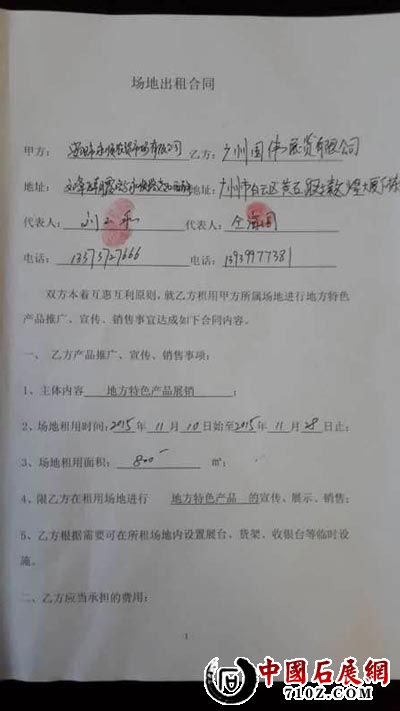 场地出租合同
甲方: 有限公司 乙方: 广州国伟展贸有限公司
地址: 地址: 广州市白云区黄石
代表人: 刘 代表人: 仝海
电话: 13373727666 电话: 13939977381
双方本着互惠互利原则,就乙方租用甲方所属场地进行地方特色
产品推广、宣传、销售事宜达成如下合同内容。
一、 乙方产品推广、宣传、销售事项:
1、主体内容 地方特色产品展销 ;
2、场地租用时间:2015 年 11 月 10 日始至 2015 年 11 月 28 日止;
3、场地租用面积: 800 ㎡;
4、限乙方在租用场地进行 地方特色产品 的宣传、展示、销售;
5、乙方根据需要可在所租场地内设置展台、货架、收银台等临时设
施。
二、乙方应当承担的费用:
1
中國石展網
710Z.COM